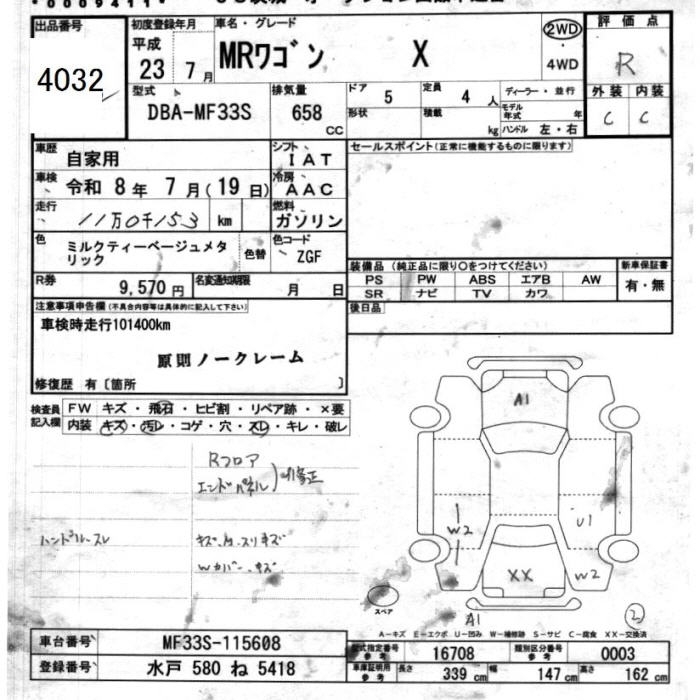 出品番号 初度登録年月 車名・グレード 2WD 評価点
4032 平成 23年 7月 MRワゴン X 4WD R
型式 排気量 ドア 定員 ディーラー・並行 外装 内装
DBA-MF33S 658 CC 5 4 人 モデル年式 年 C C
形状 積載 kg ハンドル 左・右
車歴 自家用 シフト IAT セールスポイント(正常に機能するものに限ります)
車検 令和 8年 7月(19日) 冷房 AAC
走行 11万0千153 km 燃料 ガソリン
色 ミルクティーベージュメタリック 色替 色コード ZGF
装備品(純正品に限り○をつけてください) 新車保証書
PS PW ABS エアB AW 有・無
SR ナビ TV カワ
R券 9,570円 名変通知期限 月 日
後日品
注意事項申告欄(不具合内容等は具体的に記入して下さい)
車検時走行101400km
原則ノークレーム
修復歴 有〔箇所 〕
検査員記入欄 FW キズ・飛石・ヒビ割・リペア跡・×要
内装 キズ・汚レ・コゲ・穴・スレ・キレ・破レ
Rフロア
エンドパネル 修正
ハンドルスレ
A1
W2
U1
XX
W2
A1
スペア
2
A-キズ E-エクボ U-凹み W-補修跡 S-サビ C-腐食 XX-交換済
車台番号 MF33S-115608
型式指定番号 参考 16708 類別区分番号 参考 0003
登録番号 水戸 580 ね 5418
車庫証明用 参考 長さ 339 cm 幅 147 cm 高さ 162 cm